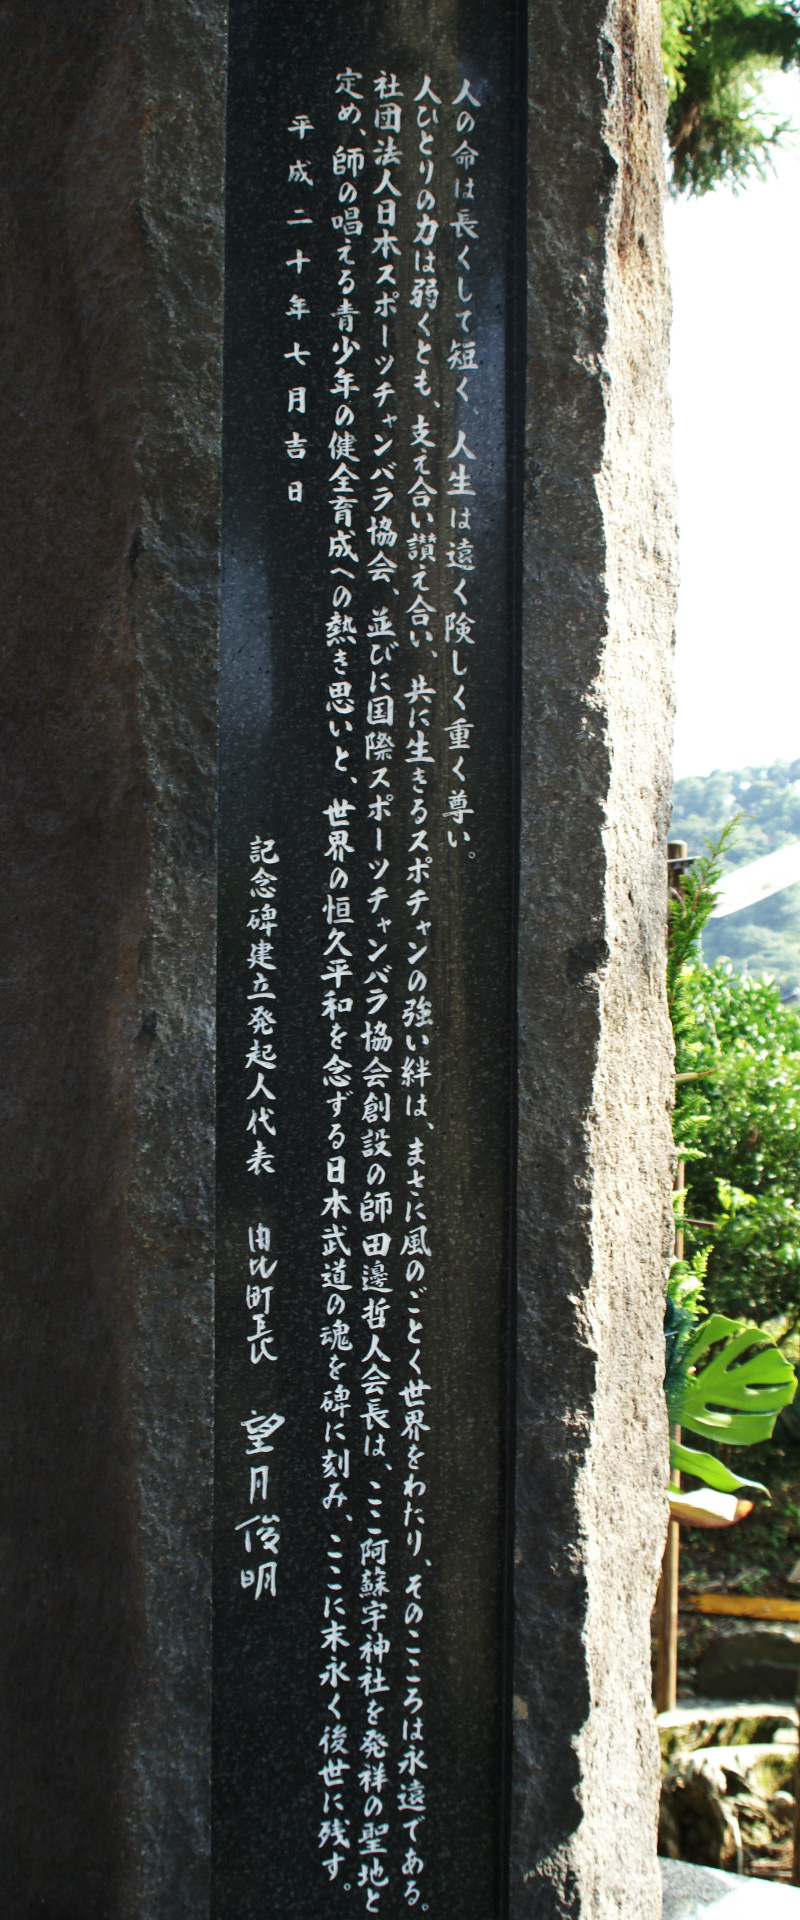 人の命は長くして短く、人生は遠く険しく重く尊い。
人ひとりの力は弱くとも、支え合い讃え合い、共に生きるスポチャンの強い絆は、まさに風のごとく世界をわたり、そのこころは永遠である。
社団法人日本スポーツチャンバラ協会、並びに国際スポーツチャンバラ協会創設の師田邊哲人会長は、ここ阿蘇宇神社を発祥の聖地と
定め、師の唱える青少年の健全育成への熱き思いと、世界の恒久平和を念ずる日本武道の魂を碑に刻み、ここに末永く後世に残す。
平成二十年七月吉日
記念碑建立発起人代表 由比町長 望月俊明